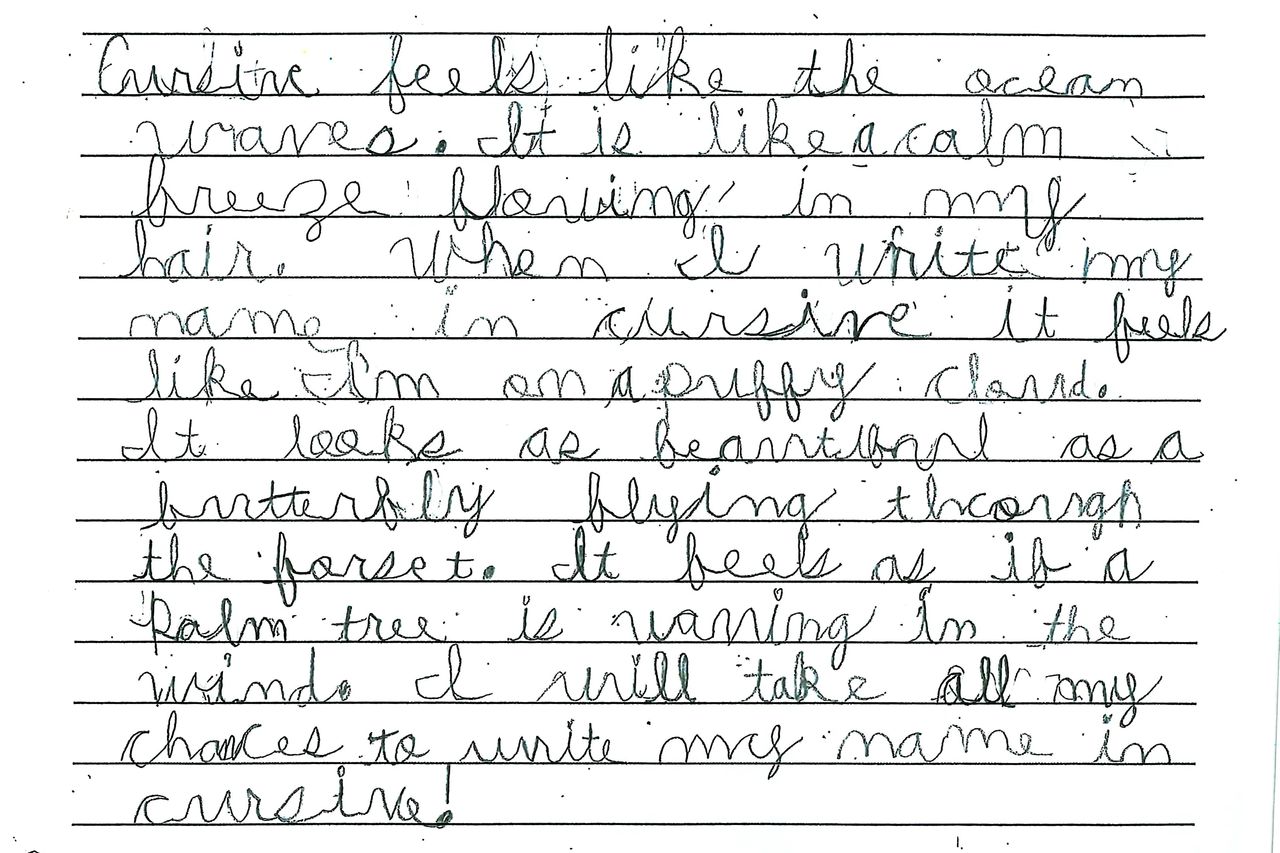 Cursive feels like the ocean
waves. It is like a calm
breeze blowing in my
hair. When I write my
name in cursive it feels
like I'm on a puffy cloud.
It looks as beautiful as a
butterfly flying through
the forset. It feels as if a
palm tree is waving in the
wind. I will take all my
chances to write my name in
cursive!